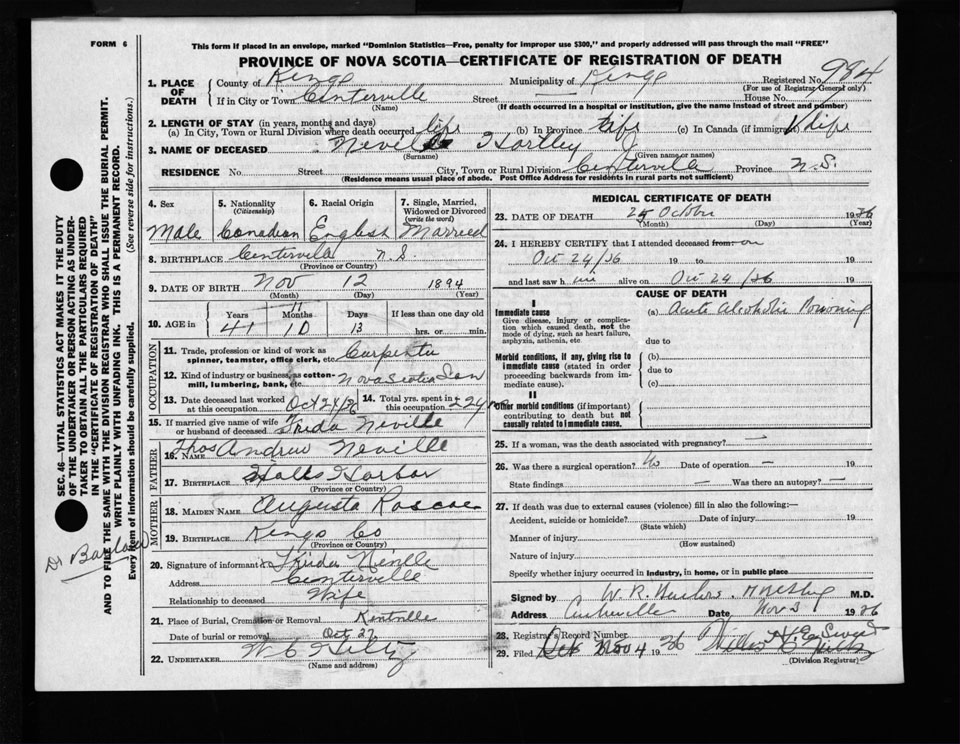 FORM 6
This form if placed in an envelope, marked "Dominion Statistics—Free, penalty for improper use $300," and properly addressed will pass through the mail "FREE"
PROVINCE OF NOVA SCOTIA—CERTIFICATE OF REGISTRATION OF DEATH
1. PLACE OF DEATH
County of Kings Municipality of Kings Registered No. 984
(For use of Registrar-General only)
If in City or Town Centerville Street House No.
(Name) (If death occurred in a hospital or institution, give the name instead of street and number)
2. LENGTH OF STAY (in years, months and days)
(a) In City, Town or Rural Division where death occurred life (b) In Province life (c) In Canada (if immigrant) life
3. NAME OF DECEASED Neville Hartley
(Surname) (Given name or names)
RESIDENCE No. Street City, Town or Rural Division Centerville Province N.S.
(Residence means usual place of abode. Post Office Address for residents in rural parts not sufficient)
4. Sex 5. Nationality (Citizenship) 6. Racial Origin 7. Single, Married, Widowed or Divorced (write the word)
Male Canadian English Married
8. BIRTHPLACE Centerville N.S.
(Province or Country)
9. DATE OF BIRTH Nov 12 1894
(Month) (Day) (Year)
10. AGE in Years Months Days If less than one day old
41 11 13 hrs. or min.
OCCUPATION
11. Trade, profession or kind of work as spinner, teamster, office clerk, etc. Carpenter
12. Kind of industry or business, as cotton-mill, lumbering, bank, etc. Nova Scotia San
13. Date deceased last worked at this occupation Oct 24/36
14. Total yrs. spent in this occupation 24 yrs
15. If married give name of wife or husband of deceased Frida Neville
FATHER
16. NAME Thos Andrew Neville
17. BIRTHPLACE Halls Harbor
(Province or Country)
MOTHER
18. MAIDEN NAME Augusta Roscoe
19. BIRTHPLACE Kings Co
(Province or Country)
20. Signature of informant Frida Neville
Address Centerville
Relationship to deceased Wife
21. Place of Burial, Cremation or Removal Kentville
Date of burial or removal Oct 27
22. UNDERTAKER W. C.
(Name and address)
MEDICAL CERTIFICATE OF DEATH
23. DATE OF DEATH 25 October 1936
(Month) (Day) (Year)
24. I HEREBY CERTIFY that I attended deceased from: on
Oct 24/36 19 to 19
and last saw h im alive on Oct 24/36 19
CAUSE OF DEATH
I
Immediate cause (a) Acute Alcoholic Poisoning
Give disease, injury or complication which caused death, not the mode of dying, such as heart failure, asphyxia, asthenia, etc.
due to
Morbid conditions, if any, giving rise to immediate cause (stated in order proceeding backwards from immediate cause).
(b)
due to
(c)
II
Other morbid conditions (if important) contributing to death but not causally related to immediate cause.
25. If a woman, was the death associated with pregnancy? —
26. Was there a surgical operation? No Date of operation — 19
State findings — Was there an autopsy? —
27. If death was due to external causes (violence) fill in also the following:
Accident, suicide or homicide? Date of injury 19
(State which)
Manner of injury
(How sustained)
Nature of injury
Specify whether injury occurred in industry, in home, or in public place
Signed by W. R. M.D.
Address Date Nov 3 1936
28. Registrar's Record Number
29. Filed Nov 4 1936
(Division Registrar)
SEC. 46—VITAL STATISTICS ACT MAKES IT THE DUTY
OF THE UNDERTAKER OR PERSON ACTING AS UNDER-
TAKER TO OBTAIN ALL THE PARTICULARS REQUIRED
IN THE "CERTIFICATE OF REGISTRATION OF DEATH"
AND TO FILE THE SAME WITH THE DIVISION REGISTRAR WHO SHALL ISSUE THE BURIAL PERMIT.
WRITE PLAINLY WITH UNFADING INK. THIS IS A PERMANENT RECORD.
Every item of information should be carefully supplied. (See reverse side for instructions.)
Dr